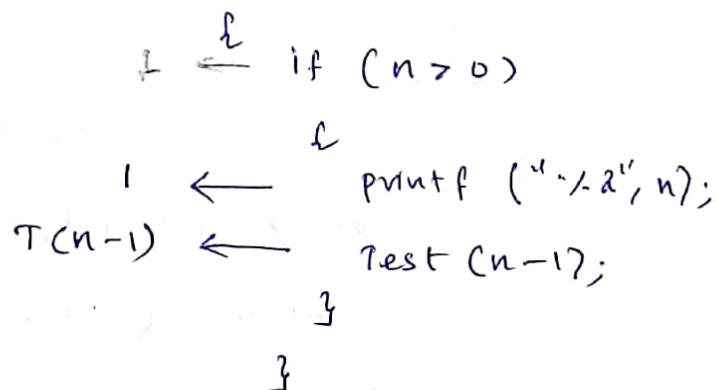 {
1 ← if (n > 0)
{
1 ← printf ("%d", n);
T(n-1) ← Test (n-1);
}
}